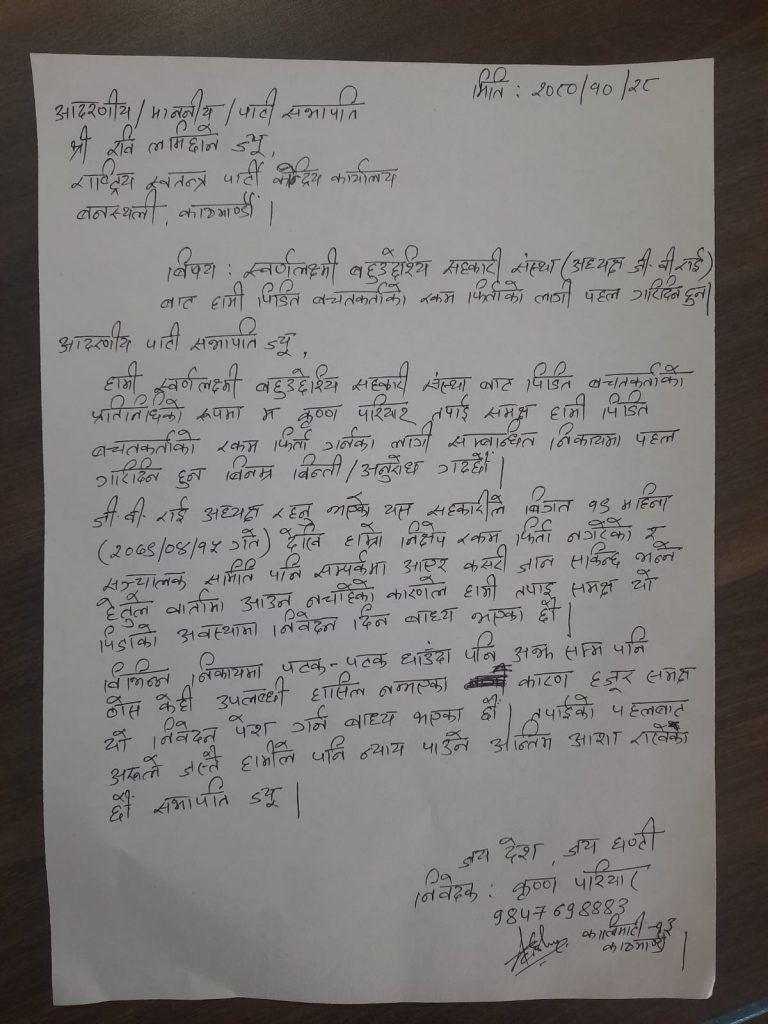 मिति : २०८०/१०/२८
आदरणीय/माननीय/पार्टी सभापति
श्री रवि लामिछाने ज्यू,
राष्ट्रिय स्वतन्त्र पार्टी केन्द्रिय कार्यालय
बनस्थली, काठमाण्डौं |
बिषय : स्वर्णलक्ष्मी बहुउद्देश्यि सहकारी संस्था (अध्यक्ष जी. बी राई)
बाट हामी पिडित बचतकर्ताको रकम फिर्ताको लागी पहल गरिदिन हुन|
आदरणीय पार्टी सभापति ज्यू,
हामी स्वर्णलक्ष्मी बहुउद्देश्यि सहकारी संस्था बाट पिडित बचतकर्ताको
प्रतिनिधिको रूपमा म कृष्ण परियार तपाई समक्ष हामी पिडित
बचतकर्ताको रकम फिर्ता गर्नका लागी सम्बन्धित निकायमा पहल
गरिदिन हुन बिनम्र बिन्ती/अनुरोध गर्दछौं|
जी. बी. राई अध्यक्ष रहनु भएको यस सहकारीले बिगत १९ महिना
(२०७९/०४/१५ गते) देखि हाम्रो निक्षेप रकम फिर्ता नगरेको र
सञ्चालक समिति पनि सम्पर्कमा आएर कसरी जान सकिन्छ भन्ने
हेतुले वार्तामा आउन नचाहेको कारणले हामी तपाइ समक्ष यो
पिडाको अवस्थामा निवेदन दिन बाध्य भएका छौं|
बिभिन्न निकायमा पटक-पटक धाउँदा पनि अझ सम्म पनि
ठोस केही उपलब्धी हासिल नभएका कारण हजूर समक्ष
यो निवेदन पेश गर्न बाध्य भएका छौं| तपाईको पहलबाट
अरूले जस्तै हामीले पनि न्याय पाउने अन्तिम आशा राखेका
छौं सभापति ज्यू|
जय देश, जय घण्टी
निवेदक : कृष्ण परियार
9847698883
कालिमाटी-१३
काठमाण्डौ |